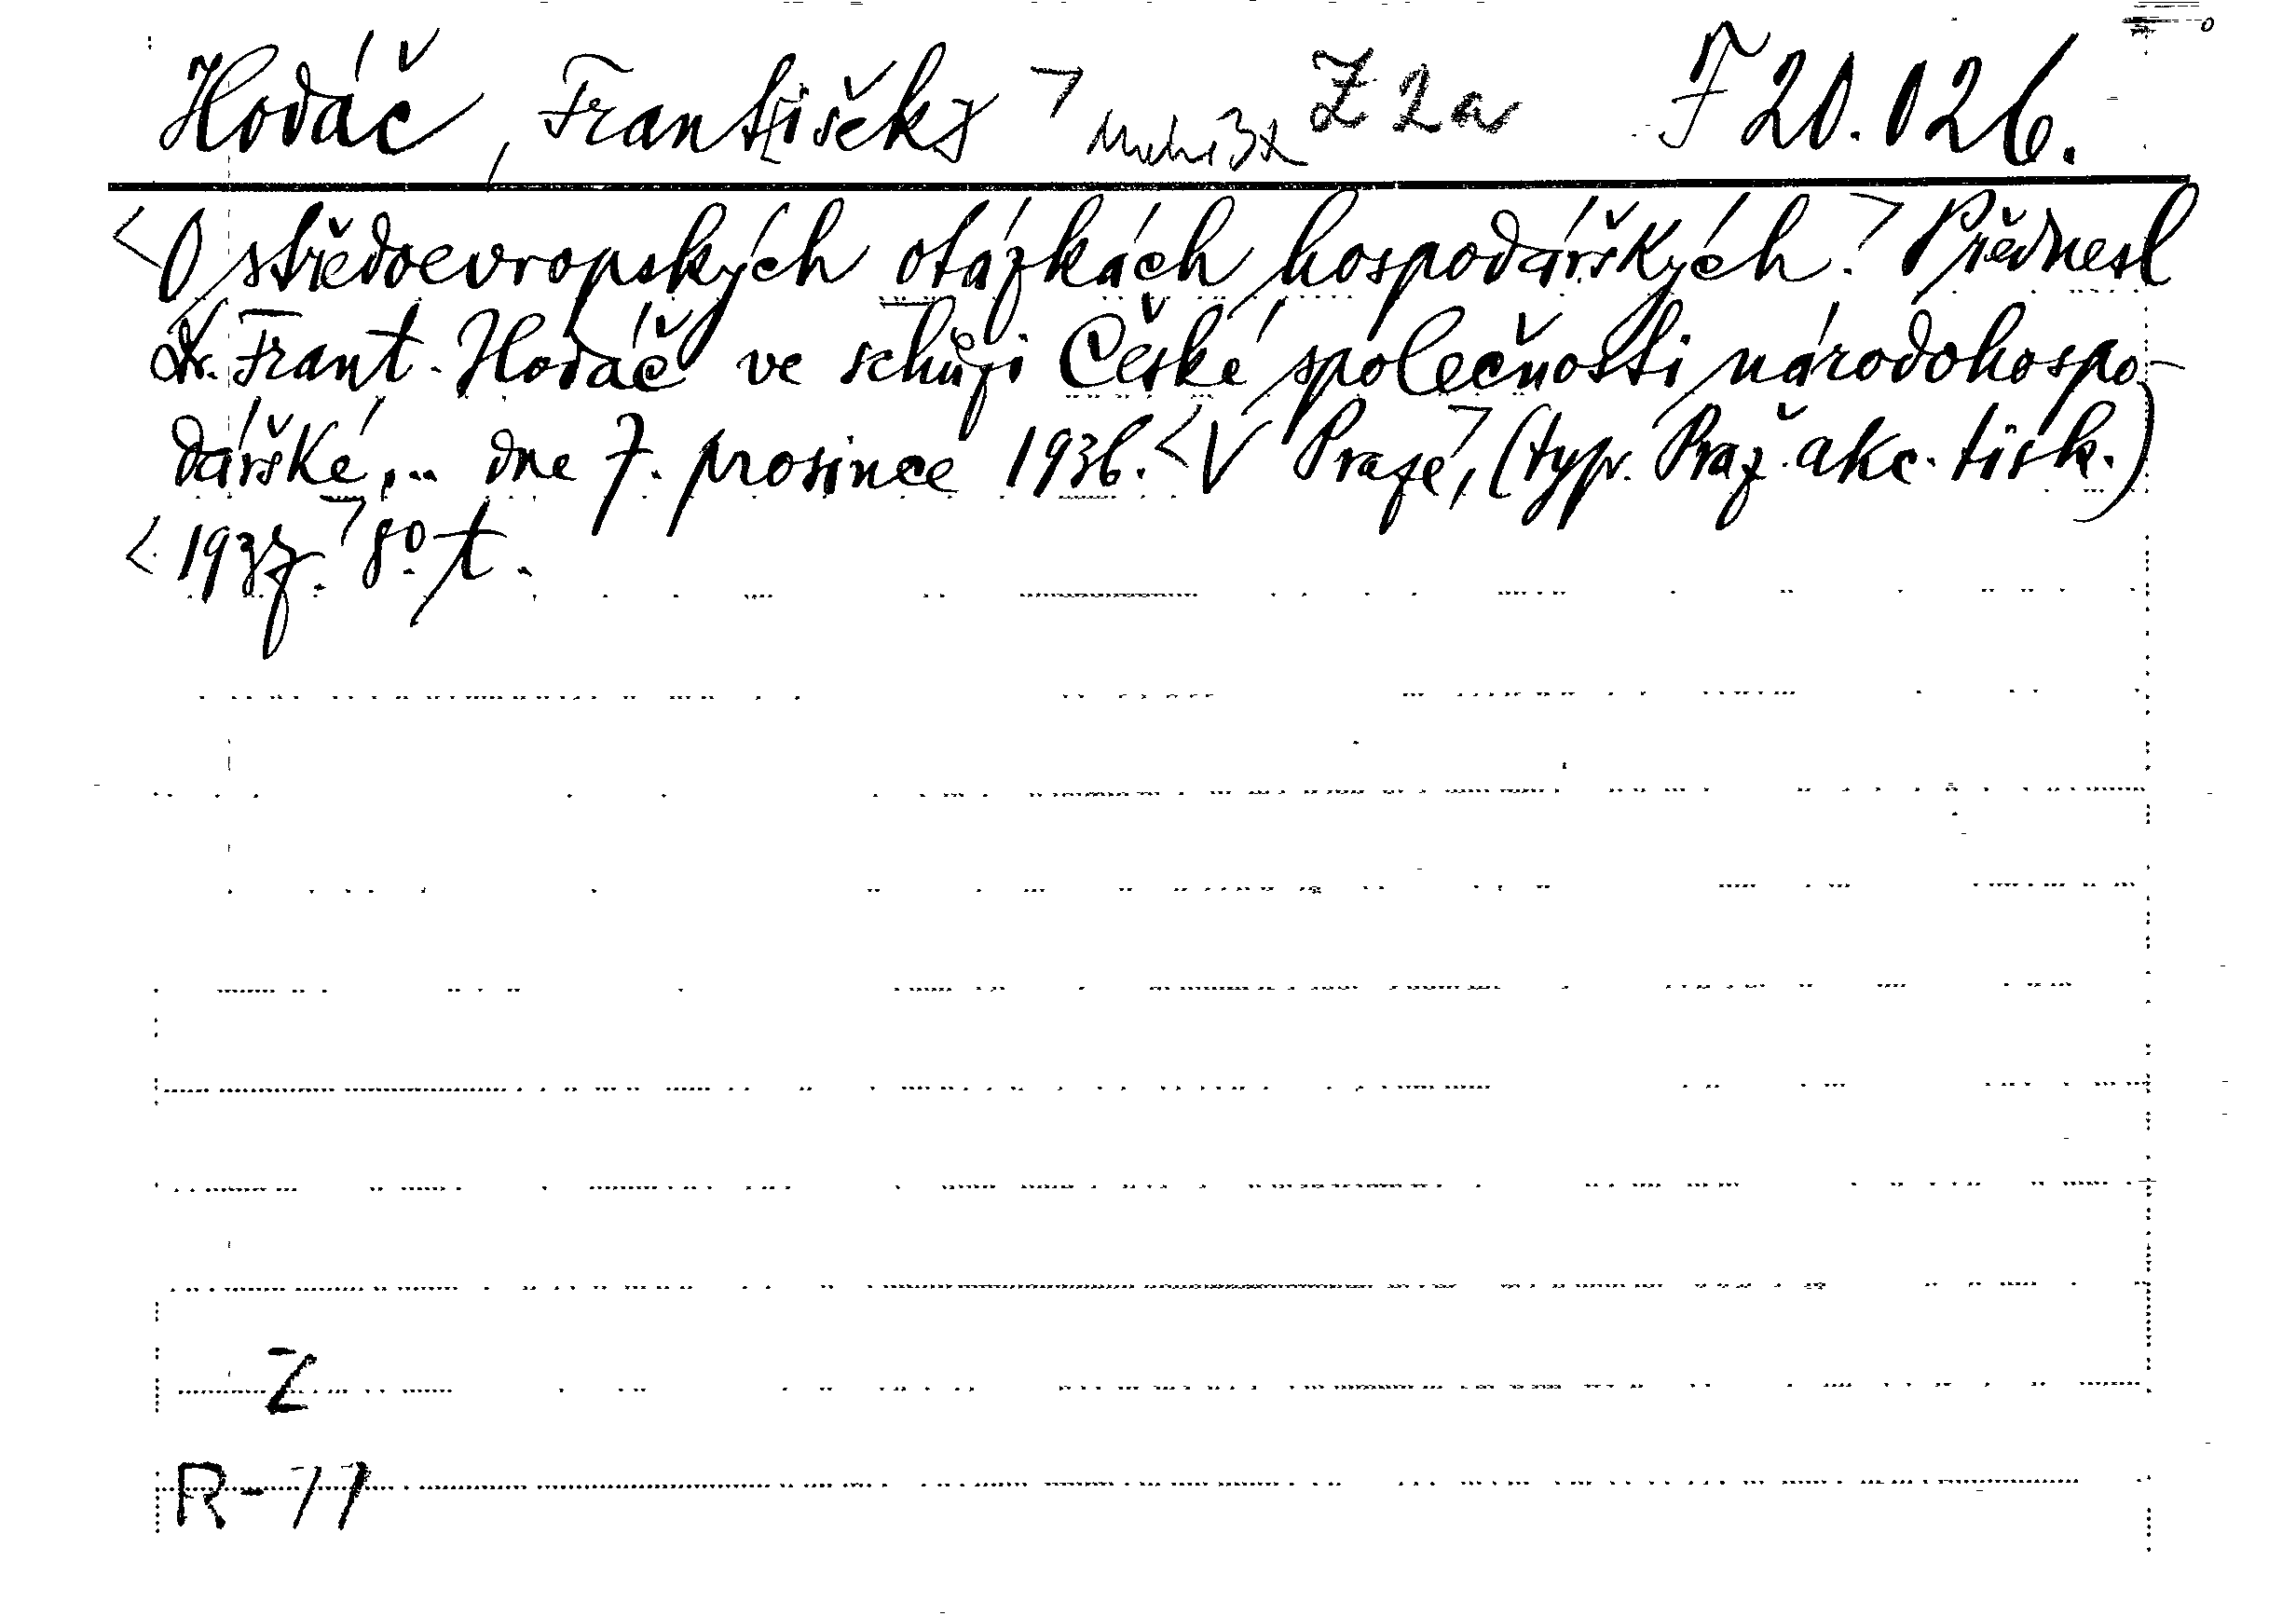 Hodáč, František Z 2a F 20.026.
<O středoevropských otázkách hospodářských.> Přednesl
Dr. Frant. Hodáč ve schůzi České společnosti národohospo-
dářské,... dne 7. prosince 1936. <V Praze>, (typ. Praž. akc. tisk.)
<1937.> 8°. t.
Z
R-77